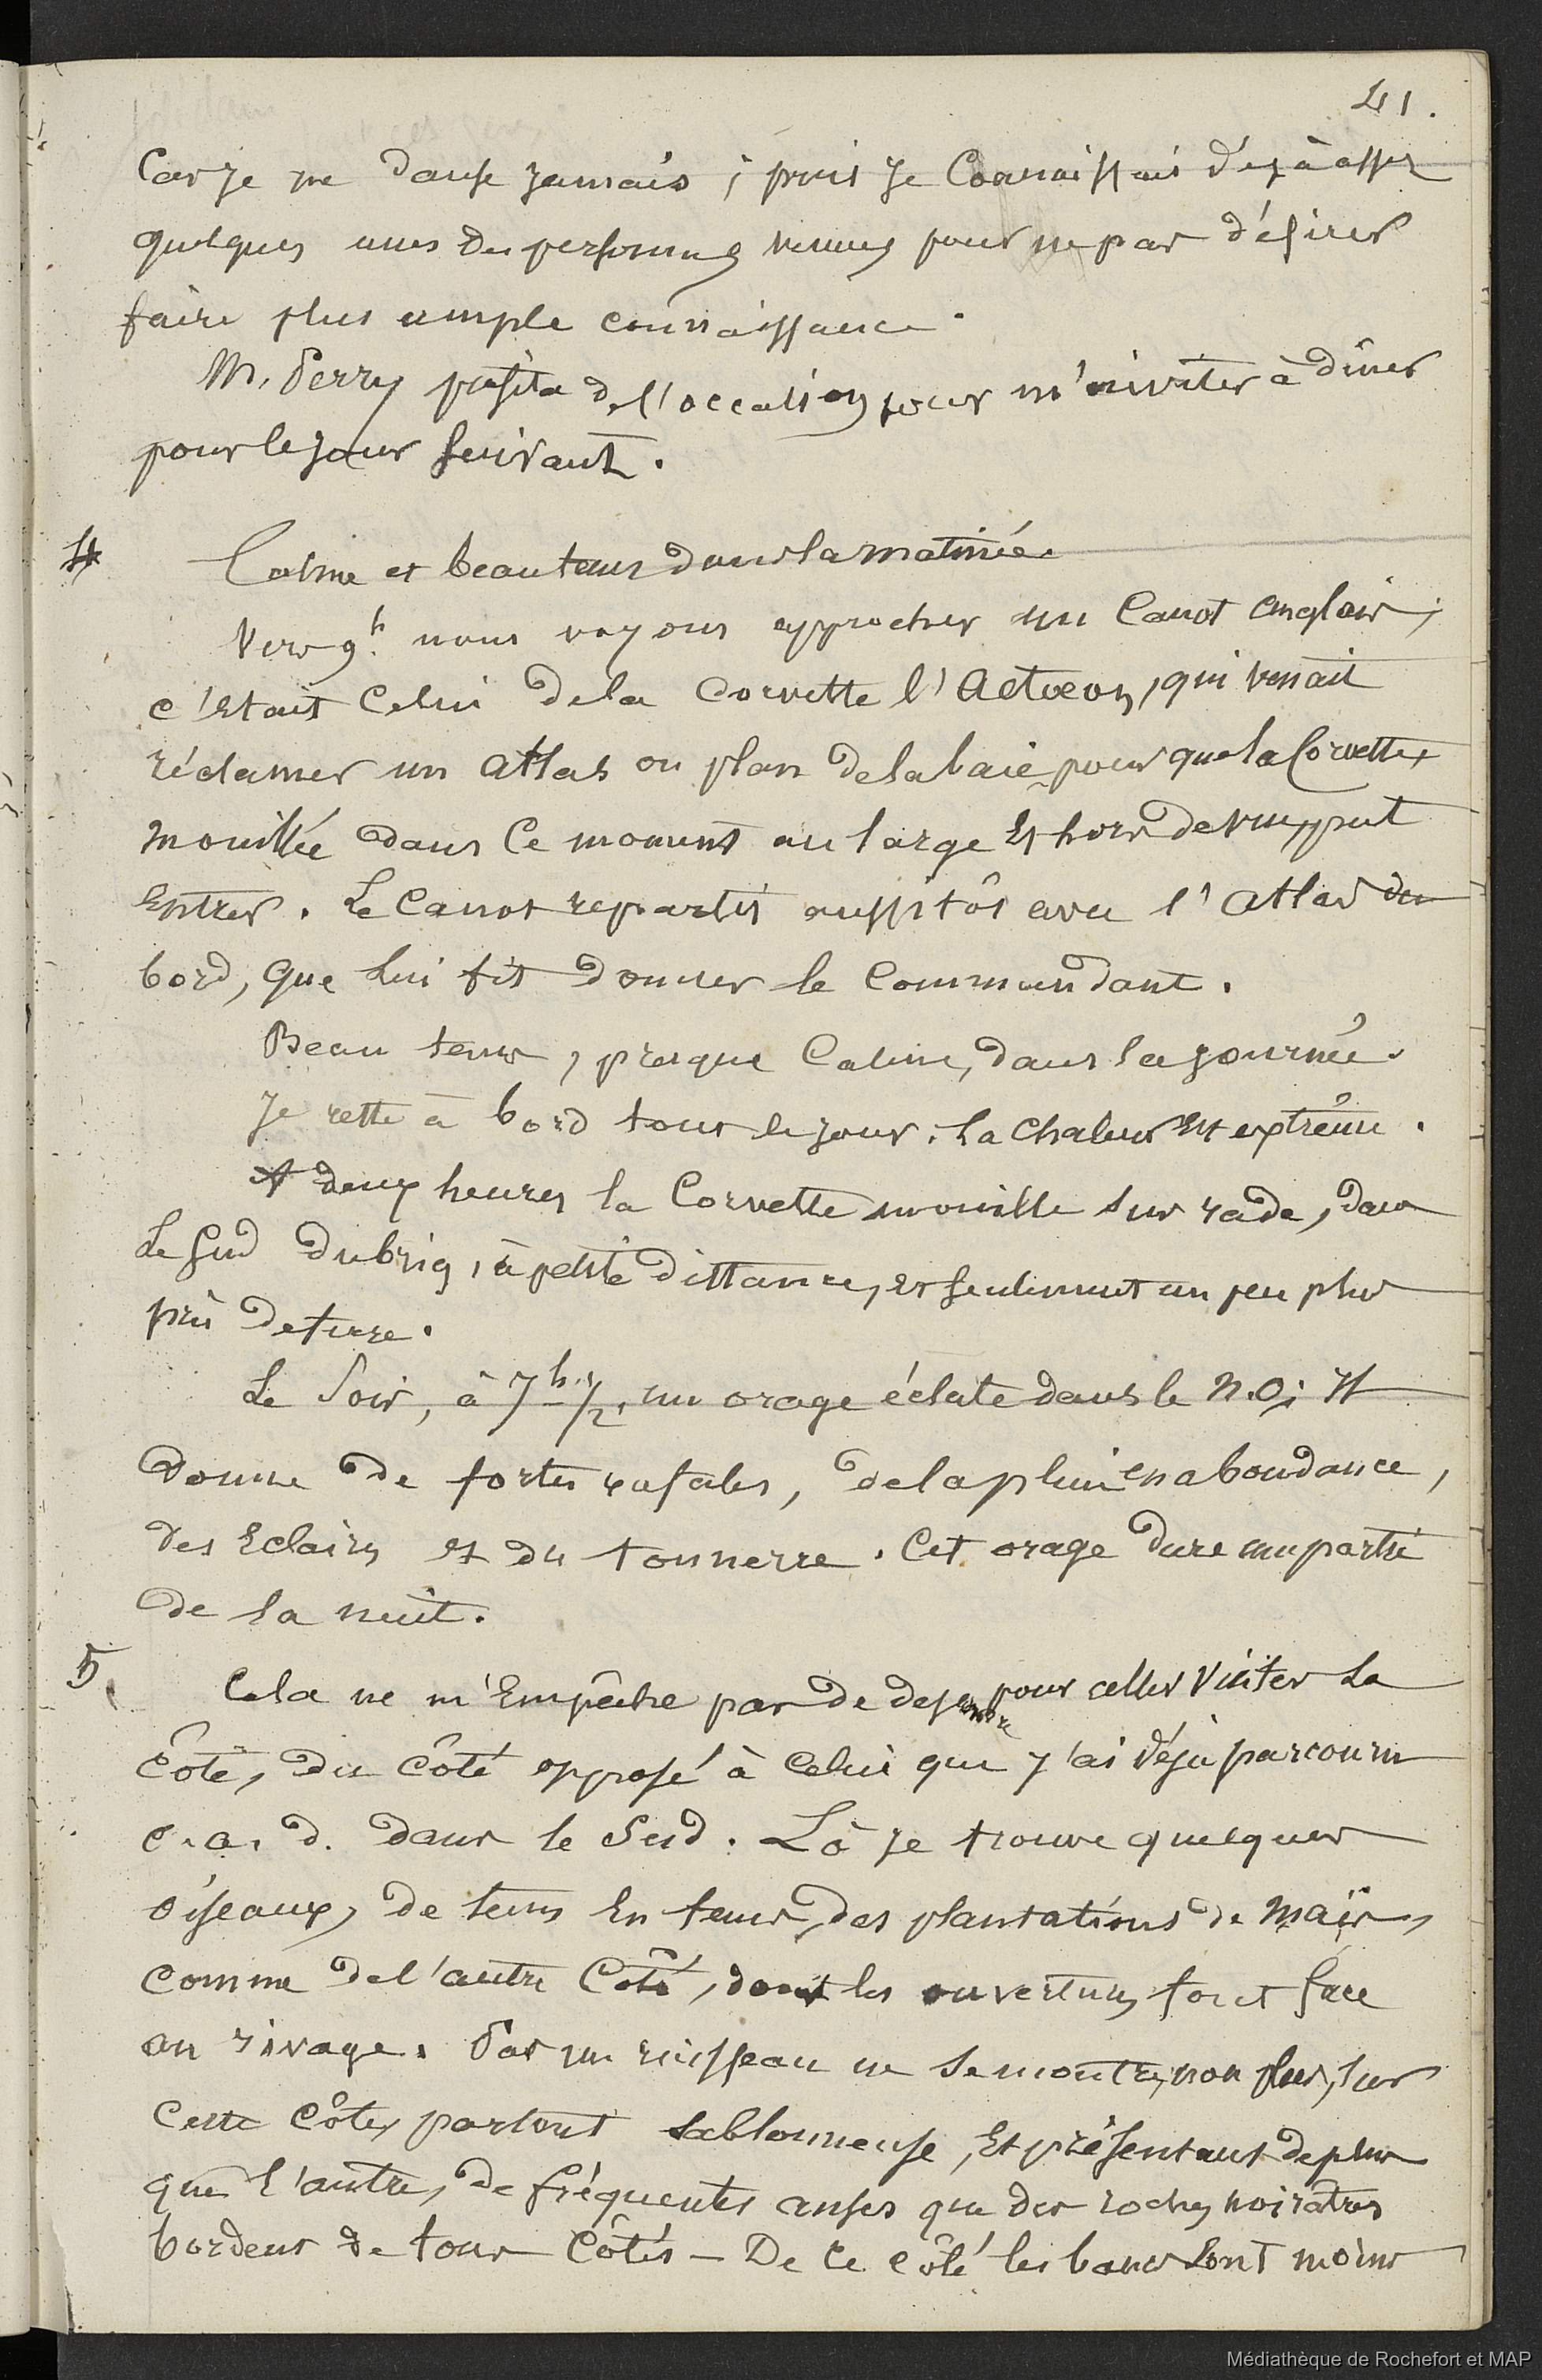 41.
Car je ne danse jamais ; puis je connaissais déjà assez
quelques unes des personnes venues pour ne pas désirer
faire plus ample connaissance.
M. Perry profita de l'occasion pour m'inviter à diner
pour le jour suivant.
4 Calme et beau tems dans la matinée.
Vers 9h. nous voyons approcher un canot anglais ;
c'était celui de la corvette l'Actœon, qui venait
réclamer un atlas ou plan de la baie pour que la corvette,
mouillée dans ce moment au large et hors de vue, put
entrer. Le canot repartit aussitôt avec l'atlas du
bord, que lui fit donner le commandant.
Beau tems, presque calme, dans la journée.
Je reste à bord tout le jour. La chaleur est extrême.
A deux heures la corvette mouille sur rade, dans
le sud du brig, à petite distance, et seulement un peu plus
près de terre.
Le soir, à 7h. 1/2, un orage éclate dans le N.O ; il
donne de fortes rafales, de la pluie en abondance,
des éclairs et du tonnerre. Cet orage dure une partie
de la nuit.
5. Cela ne m'empêche pas de descendre pour aller visiter la
côte, du côté opposé à celui que j'ai déjà parcouru
c. a. d. dans le Sud. Là je trouve quelques
oiseaux, de tems en tems, des plantations de maïs,
comme de l'autre côté, dont les ouvertures font face
au rivage. Pas un ruisseau ne se montre, non plus, sur
cette côte, partout sablonneuse, et présentant de plus
que l'autre, de fréquentes anses que des roches noirâtres
bordent de tous côtés – De ce côté les bancs sont moins
Médiathèque de Rochefort et MAP